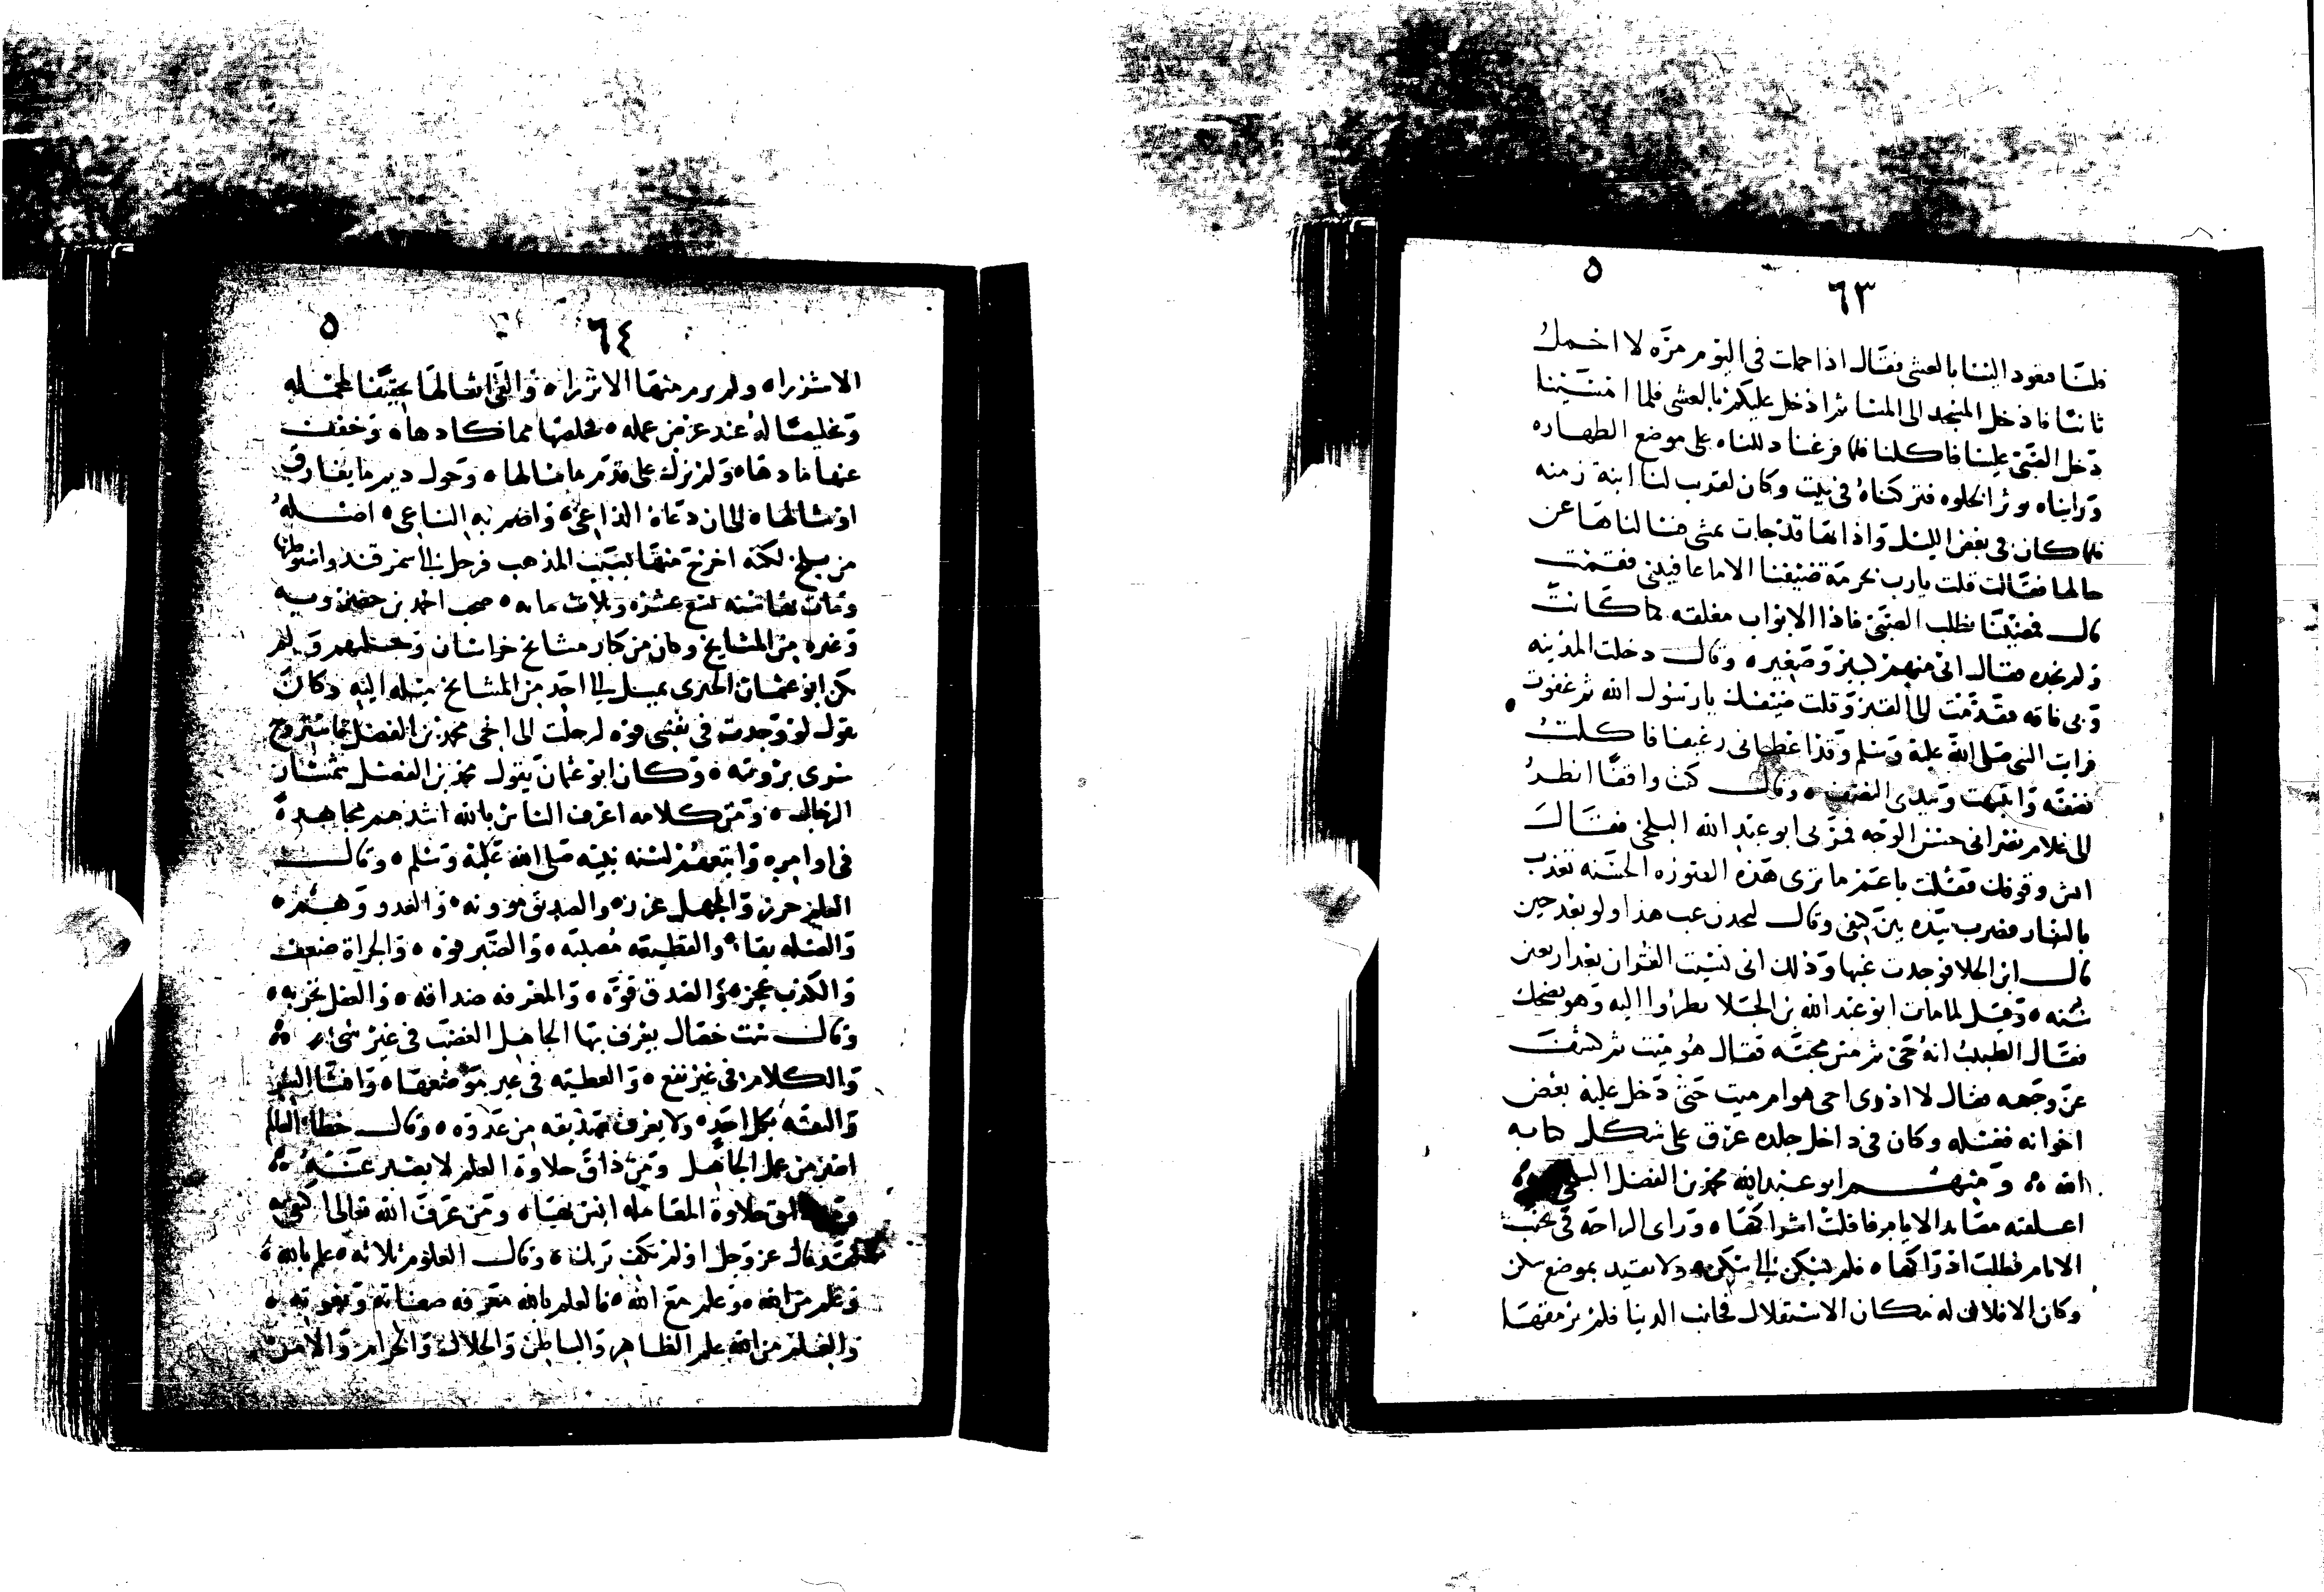 ٦٣
٥
قلنا فعود الينا بالعشي فقال اذا حملت في اليوم مره لا احمل
ثانيا فادخل المسجد الى المسا ثم ادخل عليكم بالعشي فلما امسينا
دخل الفتى علينا فاكلنا فلما فرغنا دللناه على موضع الطهاره
ورايناه يوثر الخلوه فتركناه في بيت وكان لقريب لنا ابنة زمنه
فلما كان في بعض الليل واذا بها قد جات تمشي فسالناها عن
حالها فقالت قلت يارب بحرمة ضيفنا الا ما عافيتني فقمت
قال فمضينا نطلب الفتى فاذا الابواب مغلقه كما كانت
ولم نجده فقال ابي منهم كبير وصغير ٥ وقال دخلت المدينه
وبي فاقه فتقدمت الى القبر وقلت ضيفك يا رسول الله ثم غفوت
فرايت النبي صلى الله عليه وسلم وقد اعطاني رغيفا فاكلت
نصفه وانتبهت وبيدي النصف ٥ وقال كنت واقفا انظر
الى غلام نصراني حسن الوجه فمر بي ابو عبد الله البلخي فقال
ايش وقوفك فقلت يا عم ما ترى هذه الصوره الحسنه تعذب
بالنار فضرب بيده بين كتفي وقال لتجدن غب هذا ولو بعد حين
قال ابن الجلا فوجدت غبها وذلك اني نسيت القران بعد اربعين
سنه ٥ وقيل لما مات ابو عبد الله بن الجلا نظروا اليه وهو يضحك
فقال الطبيب انه حي ثم مس مجسه فقال هو ميت ثم كشف
عن وجهه فقال لا ادري احي هو ام ميت حتى دخل عليه بعض
اخوانه فغسله وكان في داخل جلده عرق على شكل كتابه
الله ٥ ومنهم ابو عبد الله محمد بن الفضل البلخي
اعلقته مصايد الايام فافلت اشراكها ٥ وراى الراحه في تجنب
الانام فطلب ادراكها ٥ فلم يسكن الى سكن ولا تقيد بموضع سكن
وكان الافلاك له مكان الاستقلال فجانب الدنيا فلم يرمقها
٦٤
٥
الا شزرا ٥ ولم يرم منها الا نزرا ٥ والقى اثقالها تحقيقا لمحمله
وتخليصا له عند عرض عمله ٥ فخلصها مما كادها ٥ وخفف
عنها ما دهاه ٥ ولم يزل على قدم ما سالها ٥ وحول دير ما يفارق
اوشالها ٥ الى ان دعاه الداعي ٥ واضر به الناعي ٥ اصله
من بلخ لكنه اخرج منها بسبب المذهب فرحل الى سمرقند واستوطنها
ومات بها سنه تسع عشره وثلاث مايه ٥ صحب احمد بن خضرويه
وغيره من المشايخ وكان من كبار مشايخ خراسان وجلتهم ولم
يكن ابو عثمان الحيري يميل الى احد من المشايخ ميله اليه وكان
يقول لو وجدت في نفسي قوه لرحلت الى اخي محمد بن الفضل فاستروح
سري برويته ٥ وكان ابو عثمان يقول محمد بن الفضل سمسار
الرجال ٥ ومن كلامه اعرف الناس بالله اشدهم مجاهدة
في اوامره واتبعهم لسنه نبيه صلى الله عليه وسلم ٥ وقال
العلم حرز والجهل غرر ٥ والصديق موونه ٥ والعدو وهم ٥
والصله بقا ٥ والقطيعه مصيبه ٥ والصبر قوه ٥ والجراة ضعف
والكذب عجز ٥ والصدق قوه ٥ والمعرفه صداقه ٥ والعقل تجربه ٥
وقال ست خصال يعرف بها الجاهل الغضب في غير شي
والكلام في غير نفع ٥ والعطيه في غير موضعها ٥ وافشا السر
والثقه بكل احد ٥ ولا يعرف صديقه من عدوه ٥ وقال خطاء العالم
اضر من عمل الجاهل ومن ذاق حلاوة العلم لا يصبر عنه
ومن ذاق حلاوة المعامله انس بها ٥ ومن عرف الله تعالى اكتفى به
فقد قال عز وجل اولم يكف بربك ٥ وقال العلوم ثلاثه ٥ علم بالله ٥
وعلم من الله ٥ وعلم مع الله ٥ فالعلم بالله معرفه صفاته ونعوته ٥
والعلم من الله علم الظاهر والباطن والحلال والحرام والامر